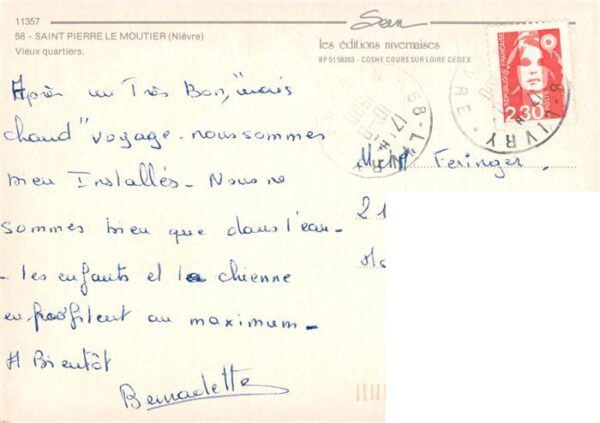 11357
58 - SAINT PIERRE LE MOUTIER (Nièvre)
Vieux quartiers.
les éditions nivernaises
BP 51 58203 - COSNE COURS SUR LOIRE CEDEX
REPUBLIQUE FRANÇAISE
2,30
LIVRY
NIEVRE
17 H
Après un Très Bon, "mais
chaud" voyage. nous sommes
bien Installés - Nous ne
sommes bien que dans l'eau -
- les enfants et la chienne
en profitent au maximum -
A Bientôt
Bernadette
Feringer
21